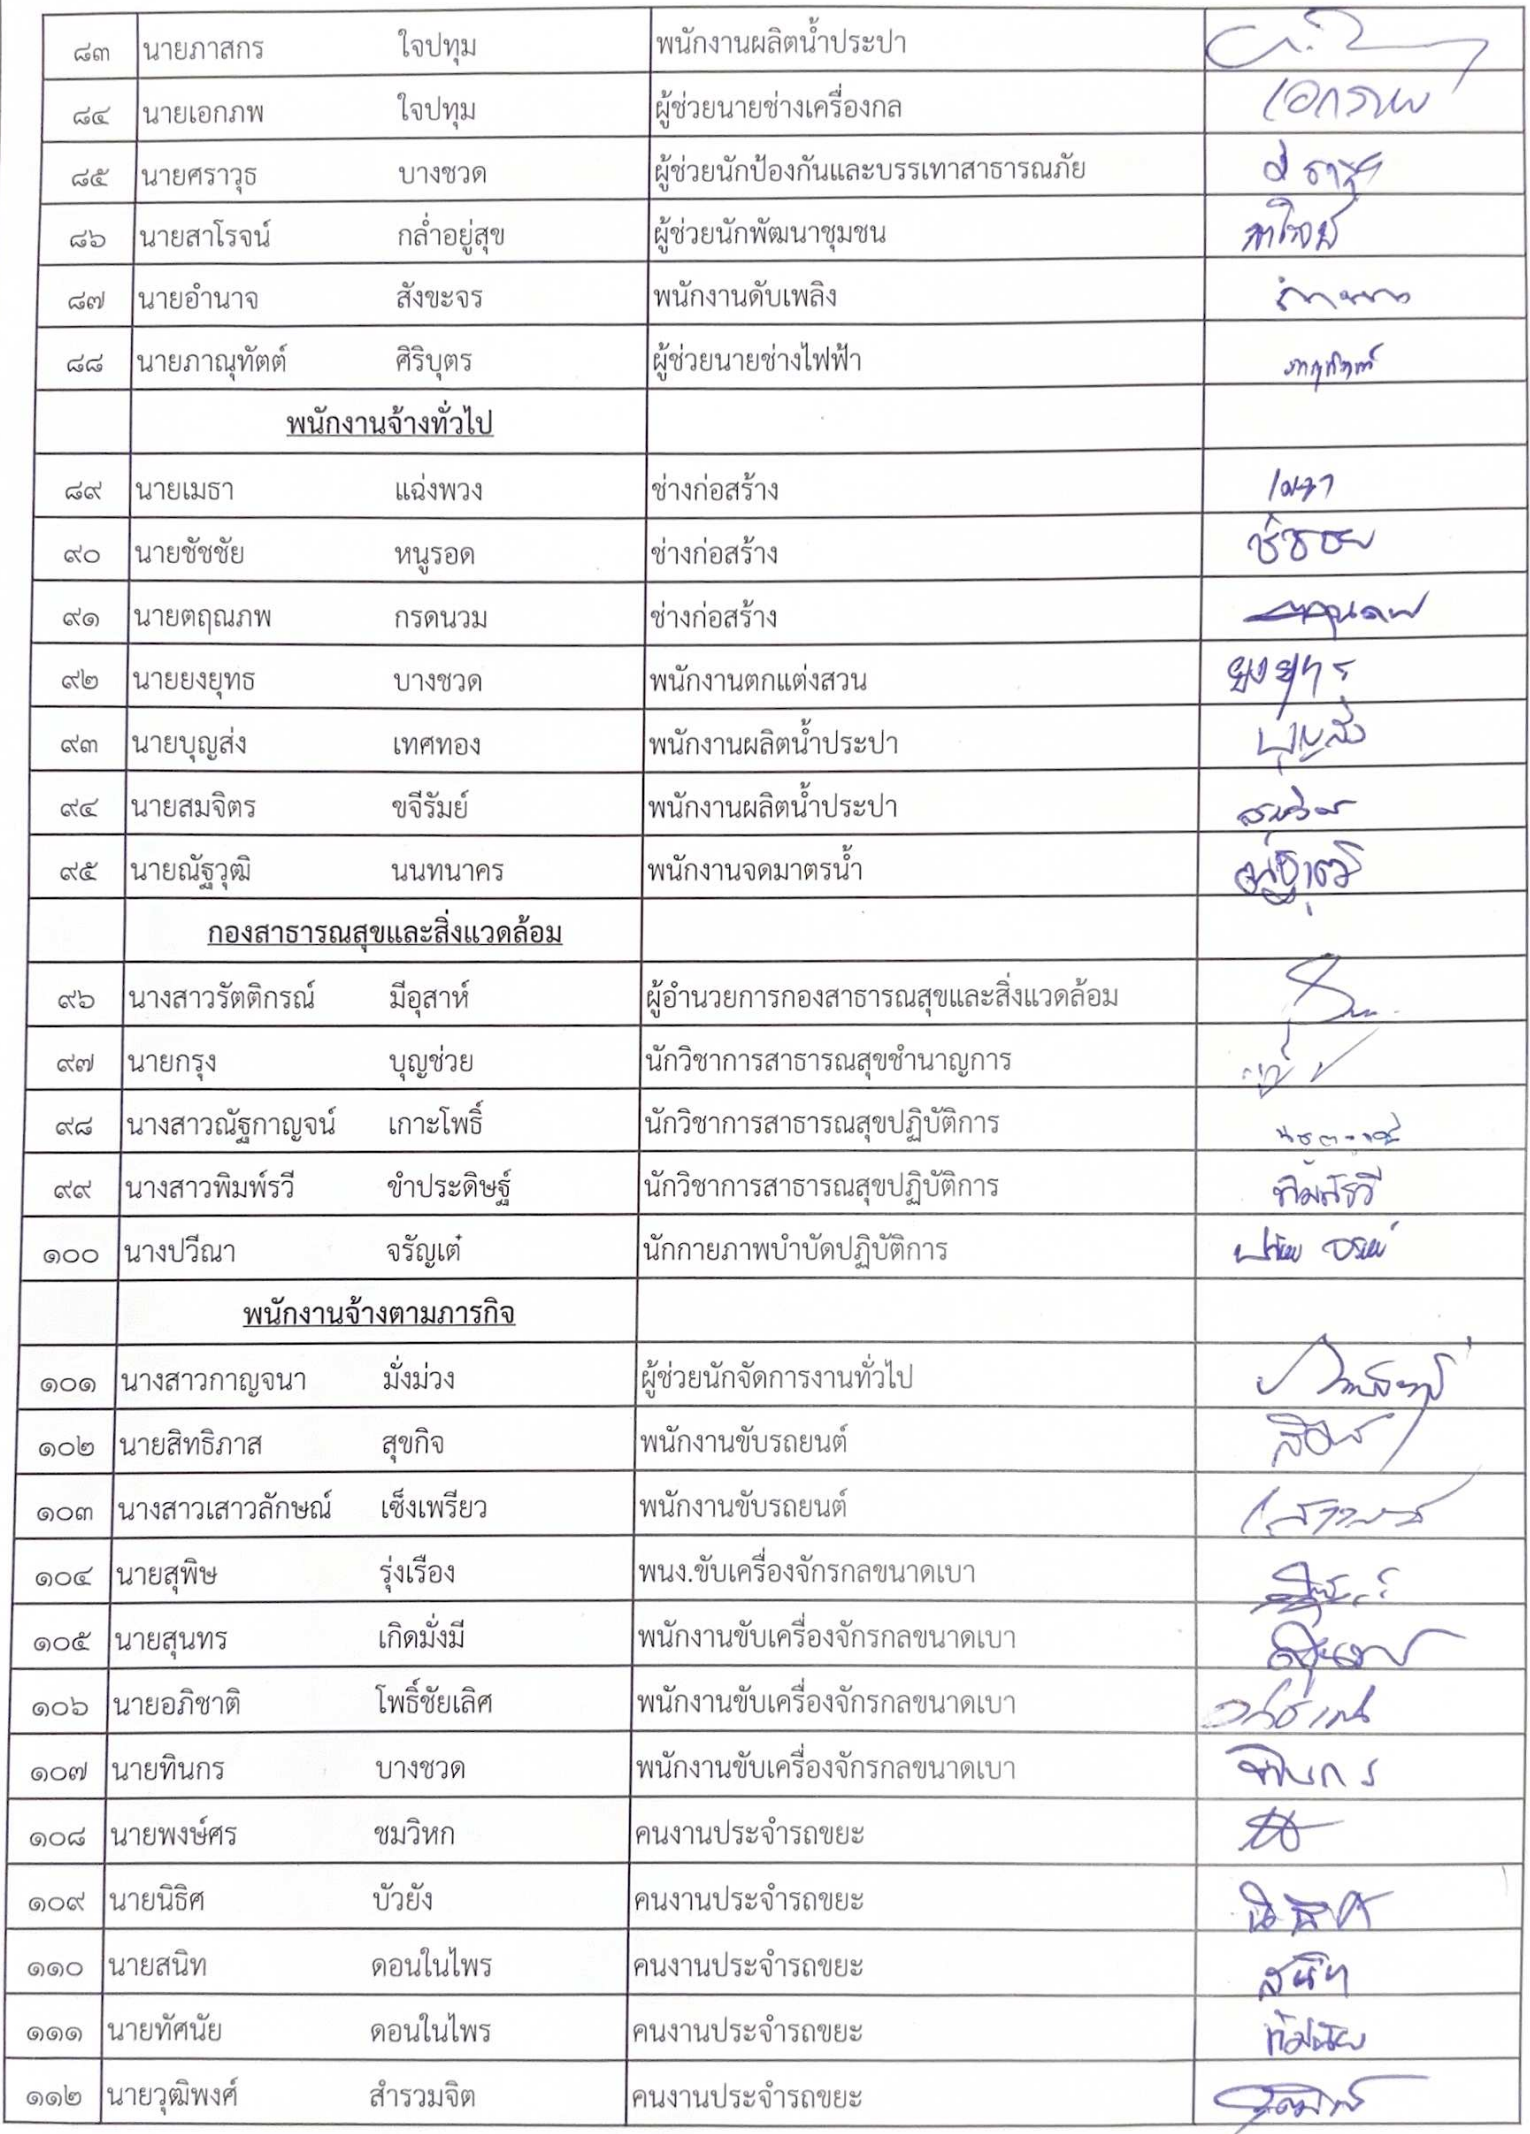 ๘๓ นายภาสกร ใจปทุม พนักงานผลิตน้ำประปา
๘๔ นายเอกภพ ใจปทุม ผู้ช่วยนายช่างเครื่องกล เอกภพ
๘๕ นายศราวุธ บางชวด ผู้ช่วยนักป้องกันและบรรเทาสาธารณภัย
๘๖ นายสาโรจน์ กล่ำอยู่สุข ผู้ช่วยนักพัฒนาชุมชน สาโรจน์
๘๗ นายอำนาจ สังขะจร พนักงานดับเพลิง
๘๘ นายภาณุทัตต์ ศิริบุตร ผู้ช่วยนายช่างไฟฟ้า ภาณุทัตต์
พนักงานจ้างทั่วไป
๘๙ นายเมธา แฉ่งพวง ช่างก่อสร้าง เมธา
๙๐ นายชัชชัย หนูรอด ช่างก่อสร้าง ชัชชัย
๙๑ นายตฤณภพ กรดนวม ช่างก่อสร้าง
๙๒ นายยงยุทธ บางชวด พนักงานตกแต่งสวน ยงยุทธ
๙๓ นายบุญส่ง เทศทอง พนักงานผลิตน้ำประปา บุญส่ง
๙๔ นายสมจิตร ขจีรัมย์ พนักงานผลิตน้ำประปา
๙๕ นายณัฐวุฒิ นนทนาคร พนักงานจดมาตรน้ำ ณัฐวุฒิ
กองสาธารณสุขและสิ่งแวดล้อม
๙๖ นางสาวรัตติกรณ์ มีอุสาห์ ผู้อำนวยการกองสาธารณสุขและสิ่งแวดล้อม
๙๗ นายกรุง บุญช่วย นักวิชาการสาธารณสุขชำนาญการ
๙๘ นางสาวณัฐกาญจน์ เกาะโพธิ์ นักวิชาการสาธารณสุขปฏิบัติการ
๙๙ นางสาวพิมพ์รวี ขำประดิษฐ์ นักวิชาการสาธารณสุขปฏิบัติการ พิมพ์รวี
๑๐๐ นางปวีณา จรัญเต๋ นักกายภาพบำบัดปฏิบัติการ
พนักงานจ้างตามภารกิจ
๑๐๑ นางสาวกาญจนา มั่งม่วง ผู้ช่วยนักจัดการงานทั่วไป
๑๐๒ นายสิทธิภาส สุขกิจ พนักงานขับรถยนต์
๑๐๓ นางสาวเสาวลักษณ์ เซ็งเพรียว พนักงานขับรถยนต์
๑๐๔ นายสุพิษ รุ่งเรือง พนง.ขับเครื่องจักรกลขนาดเบา
๑๐๕ นายสุนทร เกิดมั่งมี พนักงานขับเครื่องจักรกลขนาดเบา
๑๐๖ นายอภิชาติ โพธิ์ชัยเลิศ พนักงานขับเครื่องจักรกลขนาดเบา
๑๐๗ นายทินกร บางชวด พนักงานขับเครื่องจักรกลขนาดเบา ทินกร
๑๐๘ นายพงษ์ศร ชมวิหก คนงานประจำรถขยะ
๑๐๙ นายนิธิศ บัวยัง คนงานประจำรถขยะ นิธิศ
๑๑๐ นายสนิท ดอนในไพร คนงานประจำรถขยะ สนิท
๑๑๑ นายทัศนัย ดอนในไพร คนงานประจำรถขยะ ทัศนัย
๑๑๒ นายวุฒิพงศ์ สำรวมจิต คนงานประจำรถขยะ